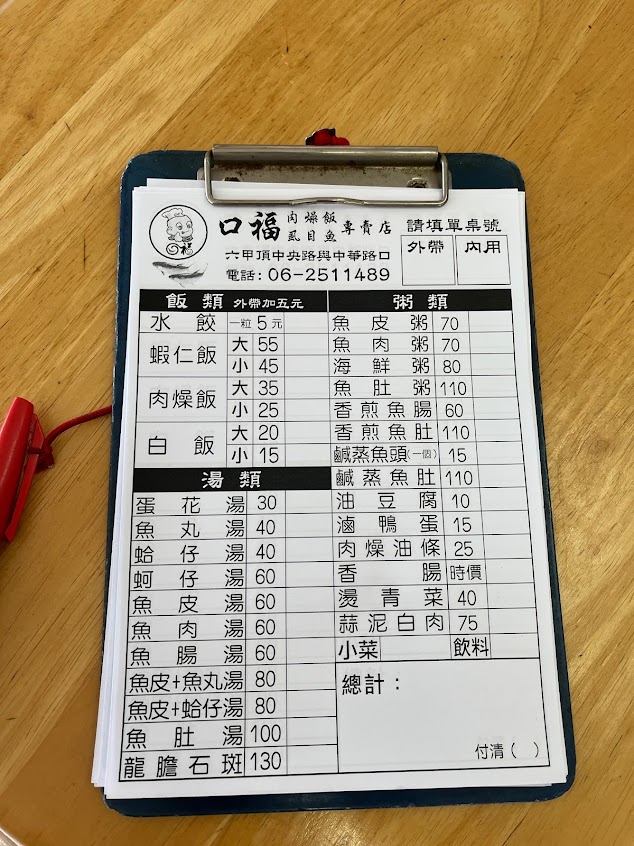 口福
口福 肉燥飯 虱目魚 專賣店
請填單桌號
外帶 內用
六甲頂中央路與中華路口
電話:06-2511489
飯類 外帶加五元
水餃 一粒 5元
蝦仁飯 大 55
小 45
肉燥飯 大 35
小 25
白飯 大 20
小 15
湯類
蛋花湯 30
魚丸湯 40
蛤仔湯 40
蚵仔湯 60
魚皮湯 60
魚肉湯 60
魚腸湯 60
魚皮+魚丸湯 80
魚皮+蛤仔湯 80
魚肚湯 100
龍膽石斑 130
粥類
魚皮粥 70
魚肉粥 70
海鮮粥 80
魚肚粥 110
香煎魚腸 60
香煎魚肚 110
鹹蒸魚頭(一個) 15
鹹蒸魚肚 110
油豆腐 10
滷鴨蛋 15
肉燥油條 25
香腸 時價
燙青菜 40
蒜泥白肉 75
小菜 飲料
總計:
付清( )